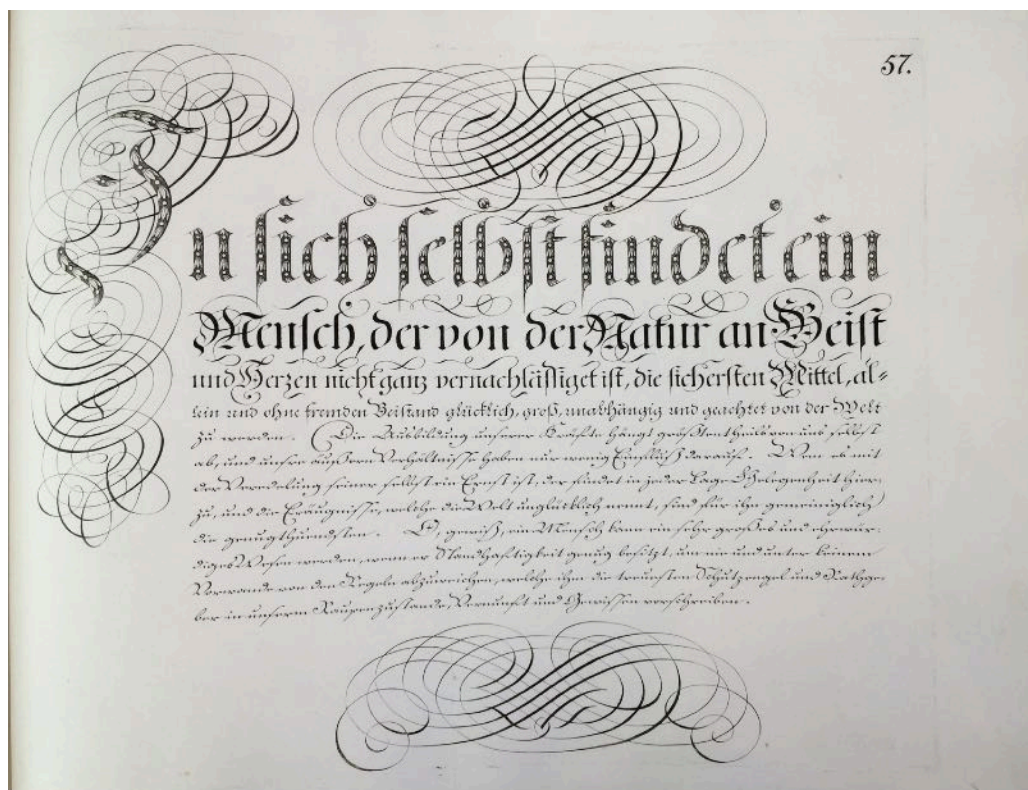 57.
In sich selbst findet ein
Mensch, der von der Natur an Geist
und Herzen nicht ganz vernachläßiget ist, die sichersten Mittel, al=
lein und ohne fremden Beistand glücklich, groß, unabhängig und geachtet von der Welt
zu werden. Die Ausbildung unserer Kräfte hängt größtentheils von uns selbst
ab, und unsre äußern Verhältnisse haben nur wenig Einfluß darauf. Wem es mit
der Veredelung seiner selbst ein Ernst ist, der findet in jeder Lage Gelegenheit hier=
zu, und die Ereugnisse, welche die Welt unglücklich nennt, sind für ihn gemeiniglich
die genugthuendsten. O, gewiß, ein Mensch kann ein sehr großes und ehrwür=
diges Wesen werden, wenn er Standhaftigkeit genug besitzt, um nie und unter keinem
Vorwande von den Regeln abzuweichen, welche ihm die treuesten Schutzengel und Rathge=
ber in unserm Raupenzustande, Vernunft und Gewissen vorschreiben.